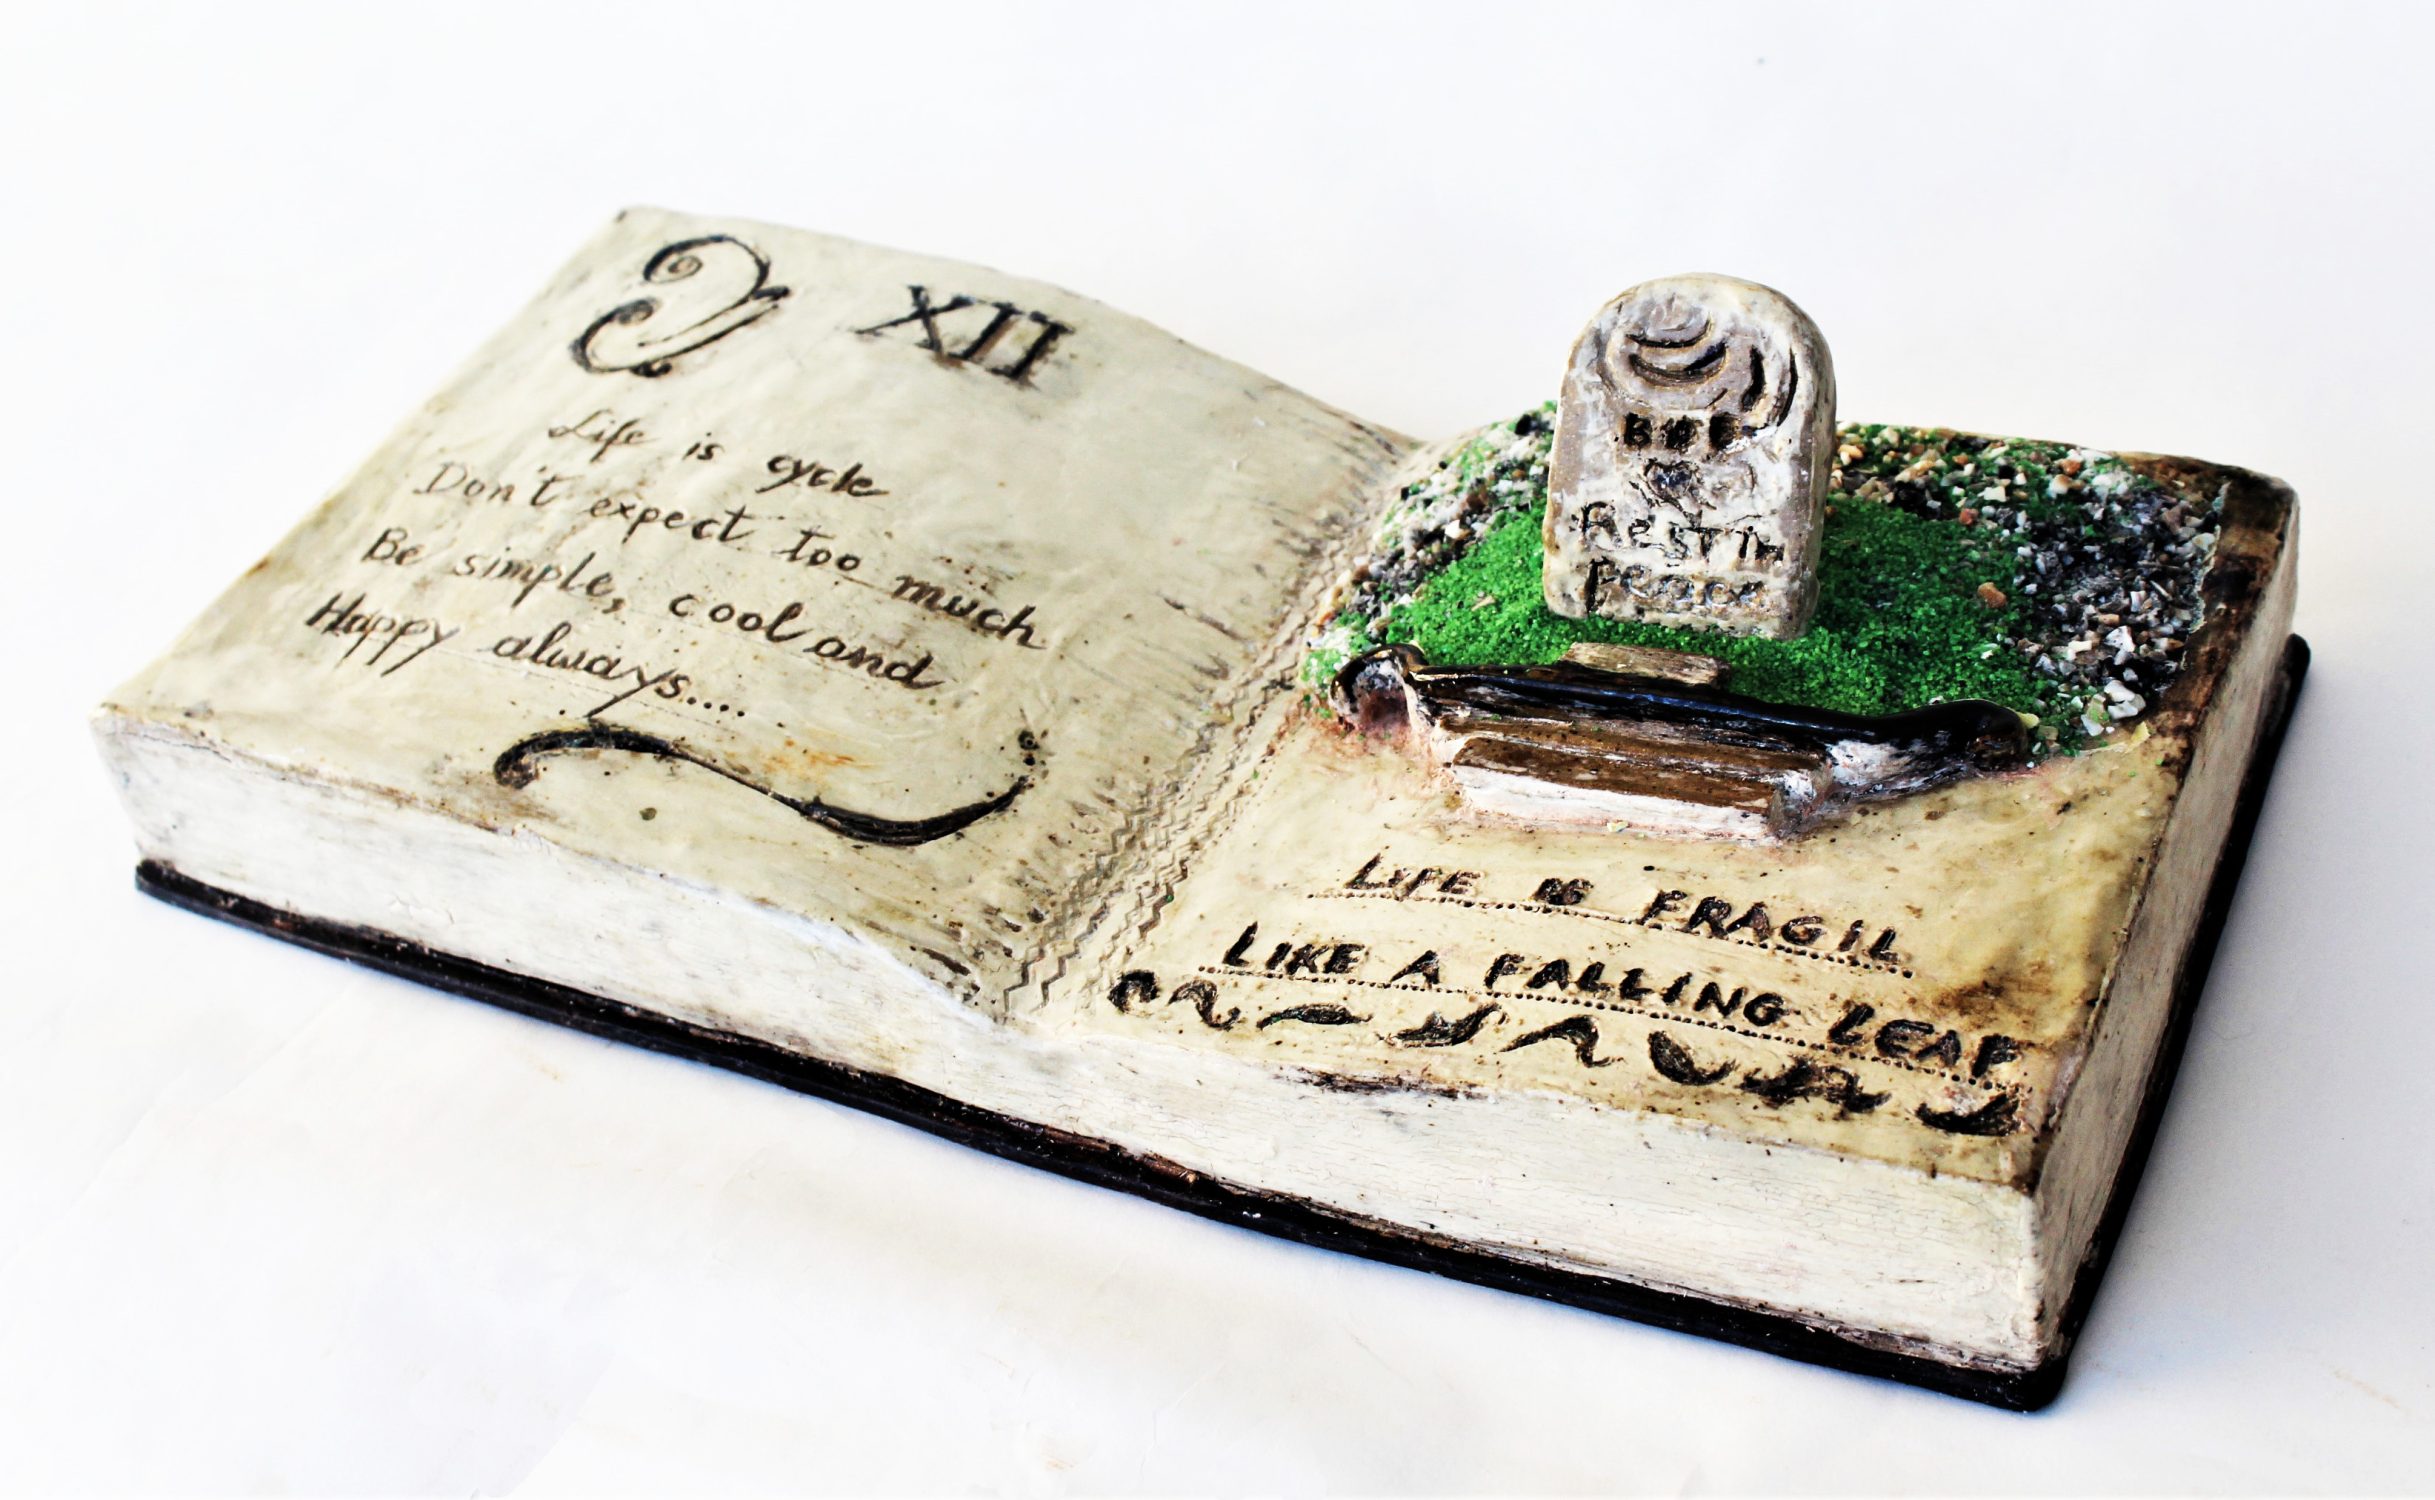 XII
Life is cycle
Don't expect too much
Be simple, cool and
Happy always....
Rest in
Peace
LIFE IS FRAGIL
LIKE A FALLING LEAF